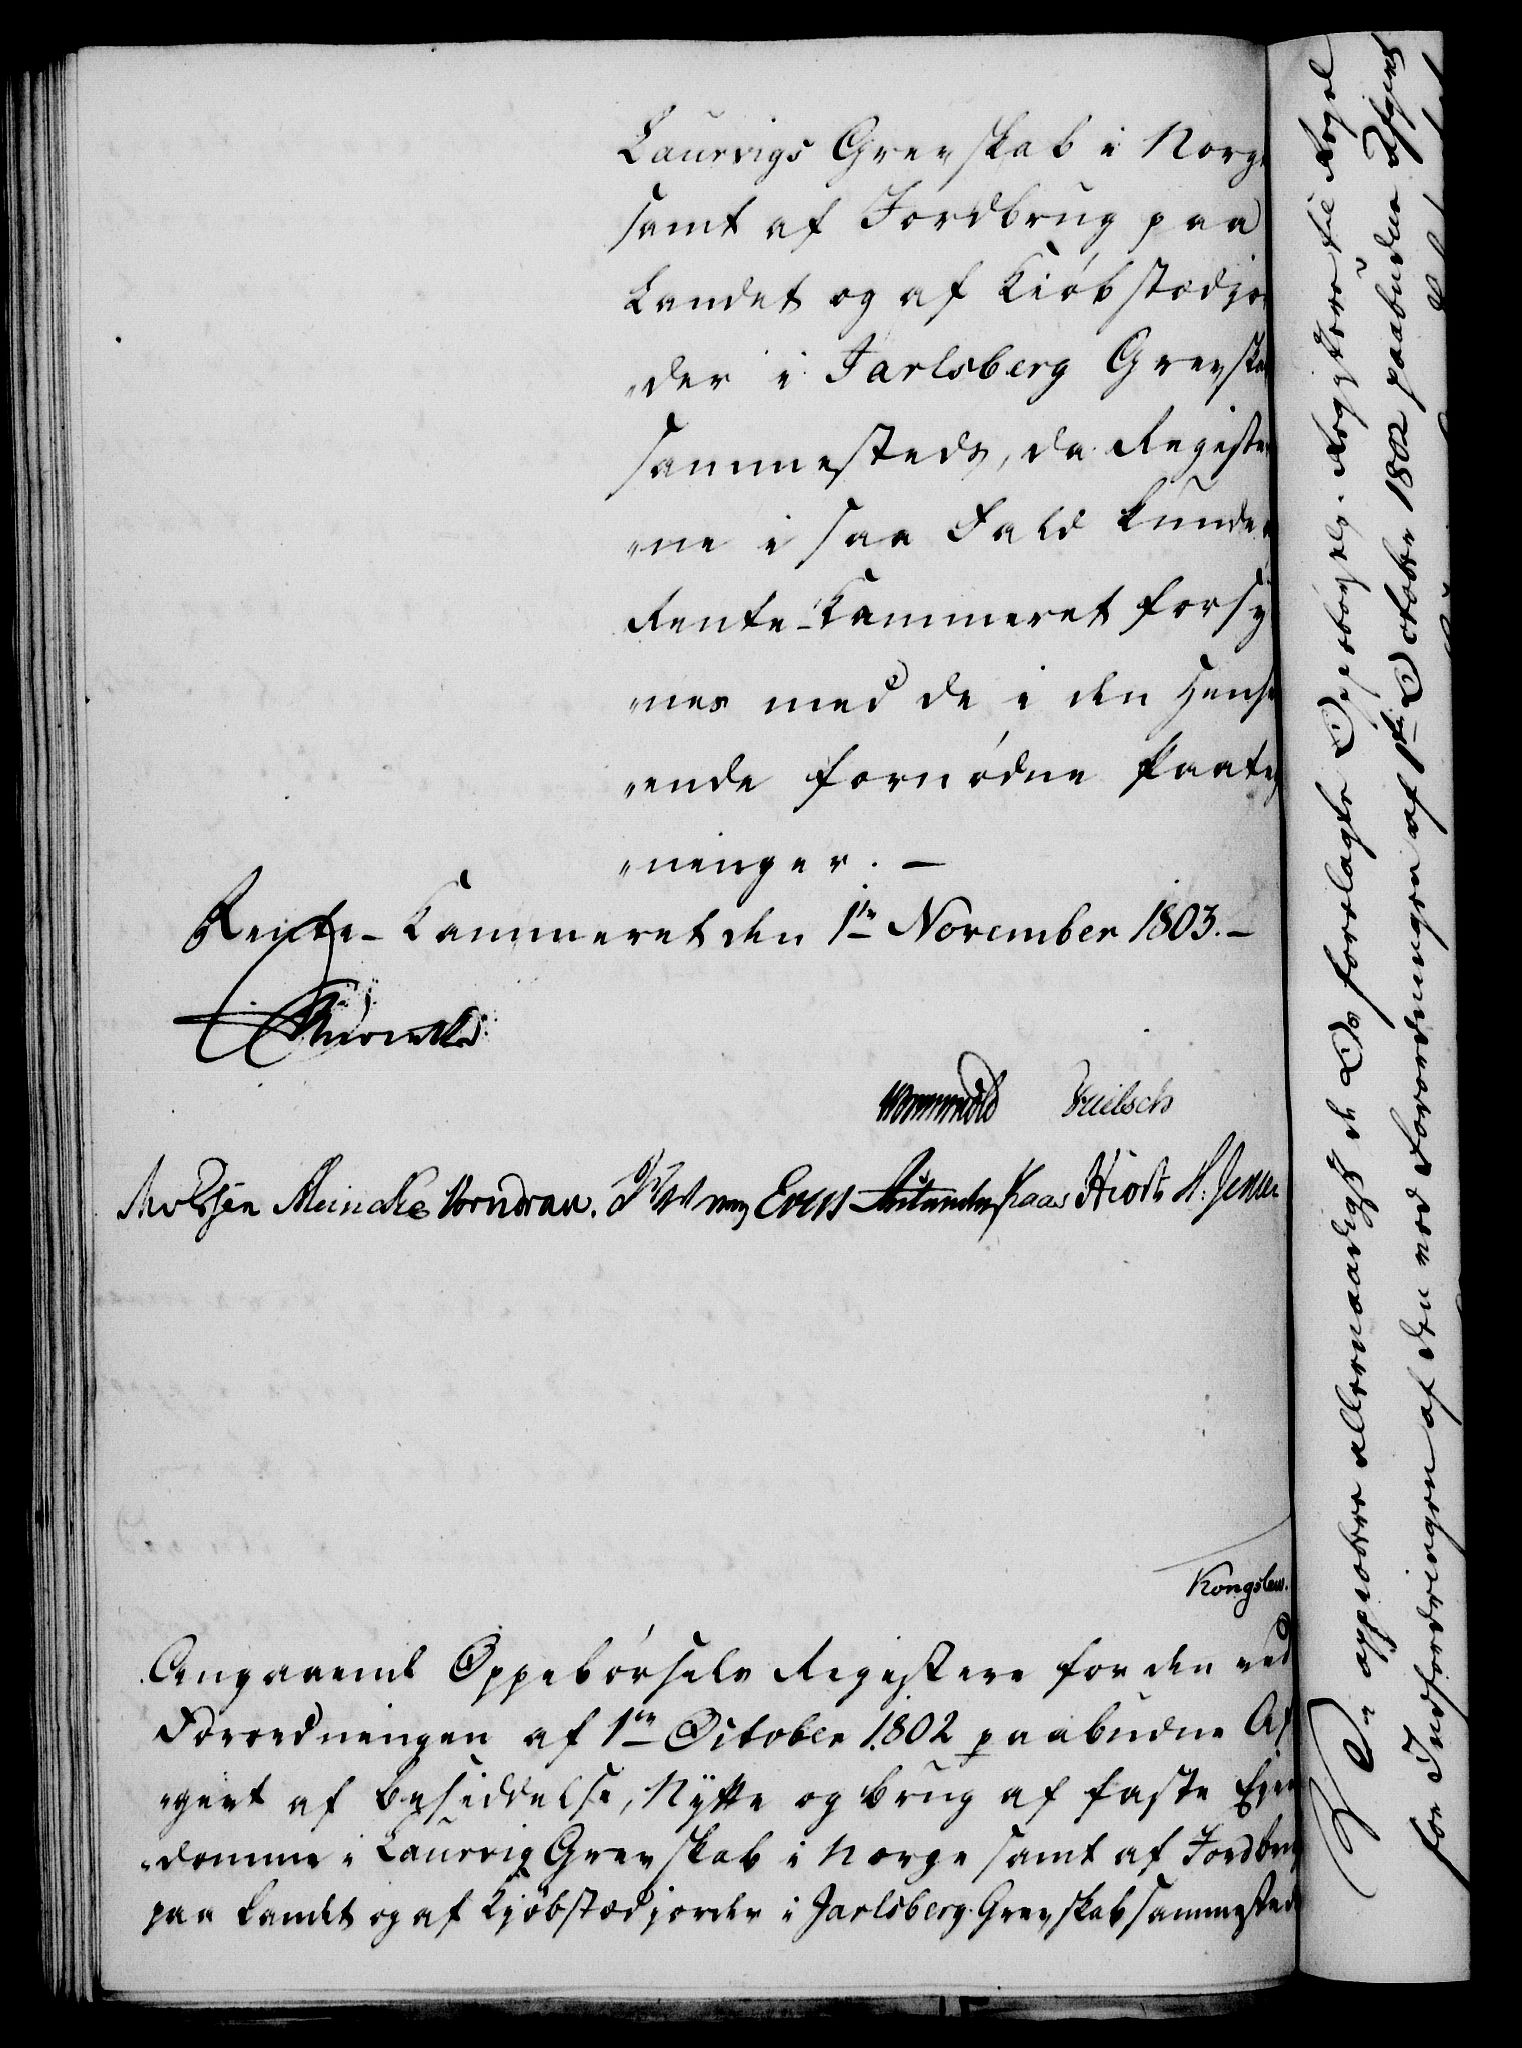 Laurvigs Grevskab i Norge
samt af Jordbrug paa
Landet og af Kiøbstædjor
„der i Jarlsberg Grevska
sammesteds, da Registe
„ne i saa Fald kunde
Rente-Kammeret forsy
„nes med de i den Hense
„ende fornødne Paateg
„ninger. —
Rente-Kammeret den 1te November 1803. —
Wormskiold Frielsch
Meincke Vorndran. Evers Kaas Hiort H. Jensen
Kongslew.
Angaaende Oppebørsels Registere for den ved
Forordningen af 1te October 1802 paabudne Af
„givt af Besiddelse, Nytte og Brug af faste Eien
„domme i Laurvig Grevskab i Norge samt af Jordbrug
paa Landet og af Kjøbstædjorder i Jarlsberg Grevskab sammesteds
Vi approbere allernaadigst de Os forelagte Oppebørsels-Registere til Regel
for Indfordringen af den ved Forordningen af 1ste October 1802 paabudne Afgivt